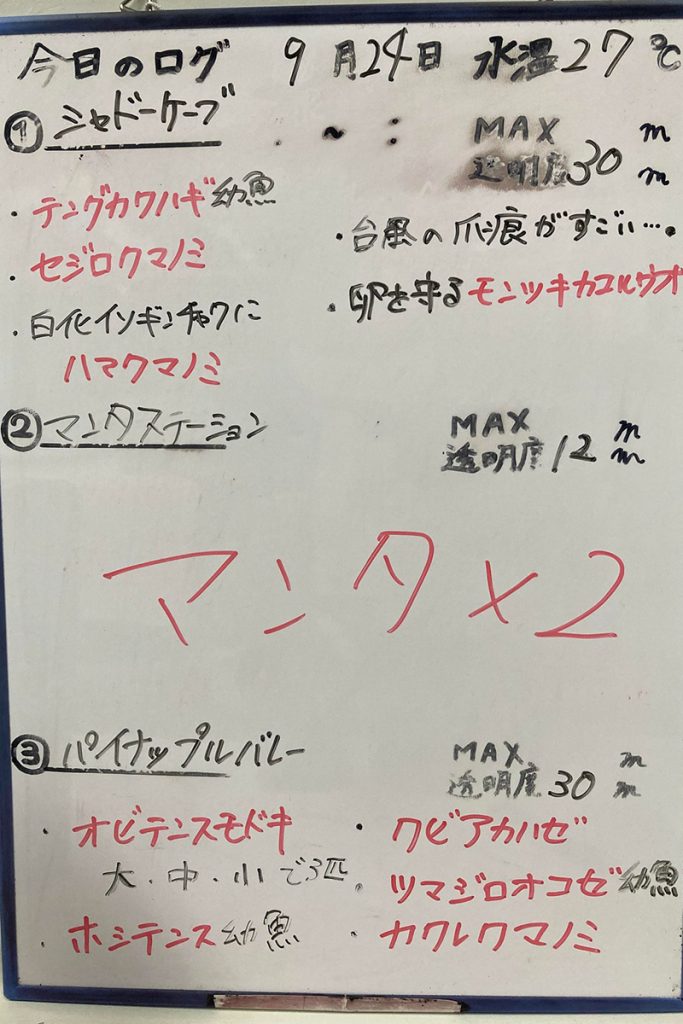 今日のログ 9月24日 水温27℃
① シャドーケーブ ~ : MAX m
透明度30 m
・テングカワハギ幼魚
・セジロクマノミ
・白化イソギンチャクに
ハマクマノミ
・台風の爪痕がすごい…。
・卵を守るモンツキカエルウオ
② マンタステーション MAX m
透明度12 m
マンタ×2
③ パイナップルバレー MAX m
透明度30 m
・オビテンスモドキ
大・中・小で3匹
・ホシテンス幼魚
・クビアカハゼ
・ツマジロオコゼ幼魚
・カクレクマノミ